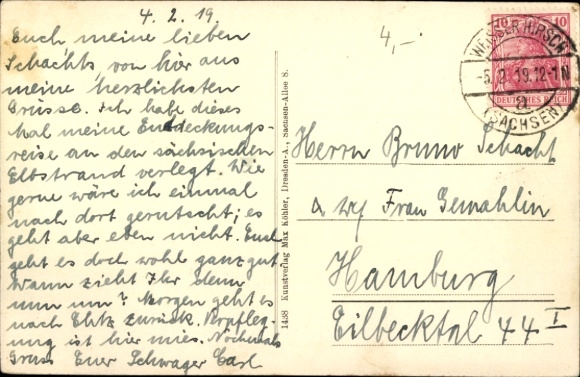 4. 2. 19.
Euch, meine lieben
Schachts, von hier aus
meine herzlichsten
Grüsse. Ich habe dieses
Mal meine Entdeckungs-
reise an den sächsischen
Elbstrand verlegt. Wie
gerne wäre ich einmal
nach dort gerutscht; es
geht aber eben nicht. Euch
geht es doch wohl ganz gut
Wann zieht Ihr denn
nun um? Morgen geht es
nach zurück. Verpfleg-
ung ist hier mies. Nochmals
Gruss Euer Schwager Carl
1438 Kunstverlag Max Köhler, Dresden-A., Sachsen-Allee 8.
4,-
10 10
DEUTSCHES REICH
WEISSER HIRSCH
-5.2.19.12-1N
a
(SACHSEN)
Herrn Bruno Schacht
Frau Gemahlin
Hamburg
Eilbecktal 44 I